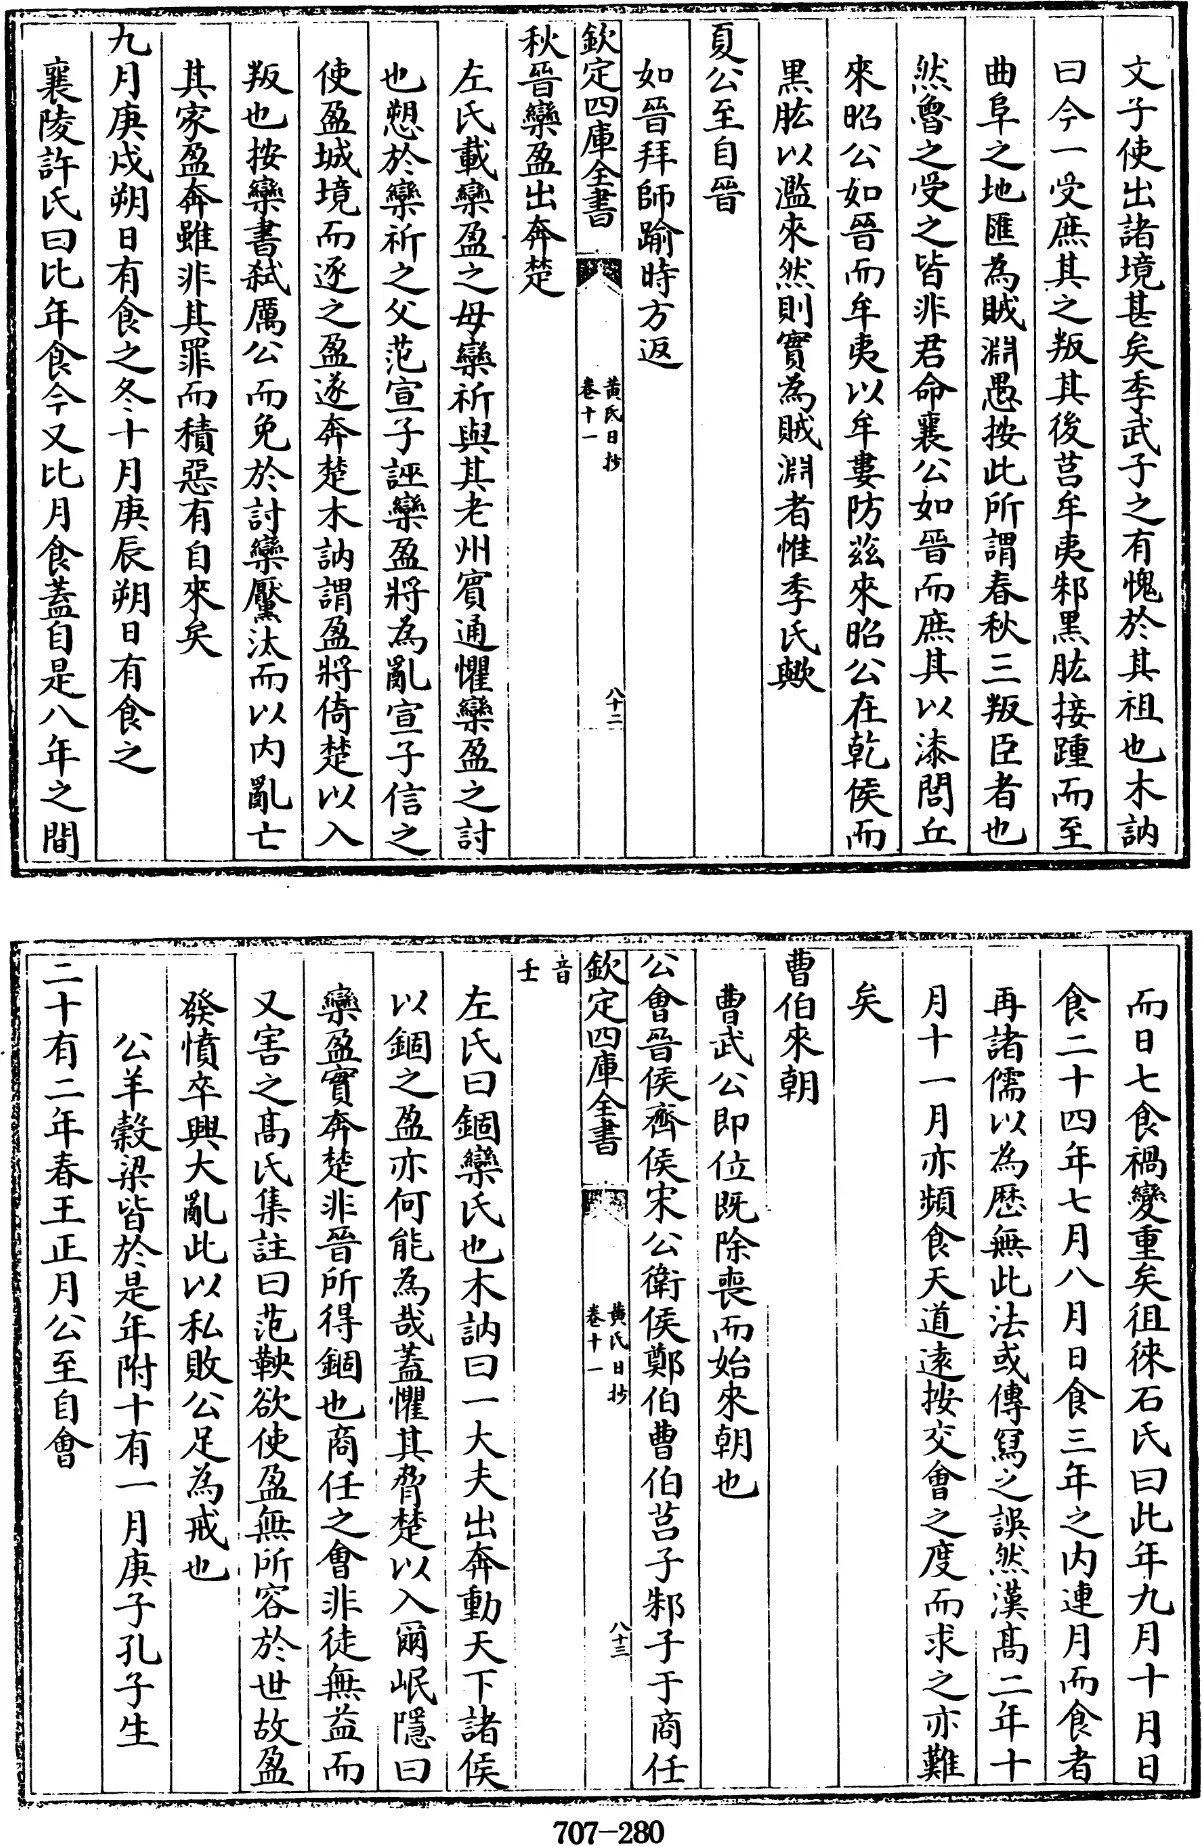 文子使出諸境甚矣季武子之有愧於其祖也木訥
曰今一受庶其之叛其後莒牟夷邾黑肱接踵而至
曲阜之地匯為賊淵愚按此所謂春秋三叛臣者也
然魯之受之皆非君命襄公如晉而庶其以漆閭丘
來昭公如晉而牟夷以牟婁防茲來昭公在乾侯而
黑肱以濫來然則實為賊淵者惟季氏歟
夏公至自晉
如晉拜師踰時方返
欽定四庫全書
黃氏日抄
卷十一
八十二
秋晉欒盈出奔楚
左氏載欒盈之母欒祈與其老州賓通懼欒盈之討
也愬於欒祈之父范宣子誣欒盈將為亂宣子信之
使盈城境而逐之盈遂奔楚木訥謂盈將倚楚以入
叛也按欒書弑厲公而免於討欒黶汰而以内亂亡
其家盈奔雖非其罪而積惡有自來矣
九月庚戌朔日有食之冬十月庚辰朔日有食之
襄陵許氏曰比年食今又比月食蓋自是八年之間
而日七食禍變重矣徂徠石氏曰此年九月十月日
食二十四年七月八月日食三年之内連月而食者
再諸儒以為歴無此法或傳冩之誤然漢髙二年十
月十一月亦頻食天道逺按交會之度而求之亦難
矣
曹伯來朝
曹武公即位既除喪而始來朝也
公會晉侯齊侯宋公衛侯鄭伯曹伯莒子邾子于商任
欽定四庫全書
黃氏日抄
卷十一
八十三
音
壬
左氏曰錮欒氏也木訥曰一大夫出奔動天下諸侯
以錮之盈亦何能為哉蓋懼其脅楚以入爾岷隱曰
欒盈實奔楚非晉所得錮也商任之會非徒無益而
又害之髙氏集註曰范鞅欲使盈無所容於世故盈
發憤卒興大亂此以私敗公足為戒也
公羊榖梁皆於是年附十有一月庚子孔子生
二十有二年春王正月公至自會
707-280